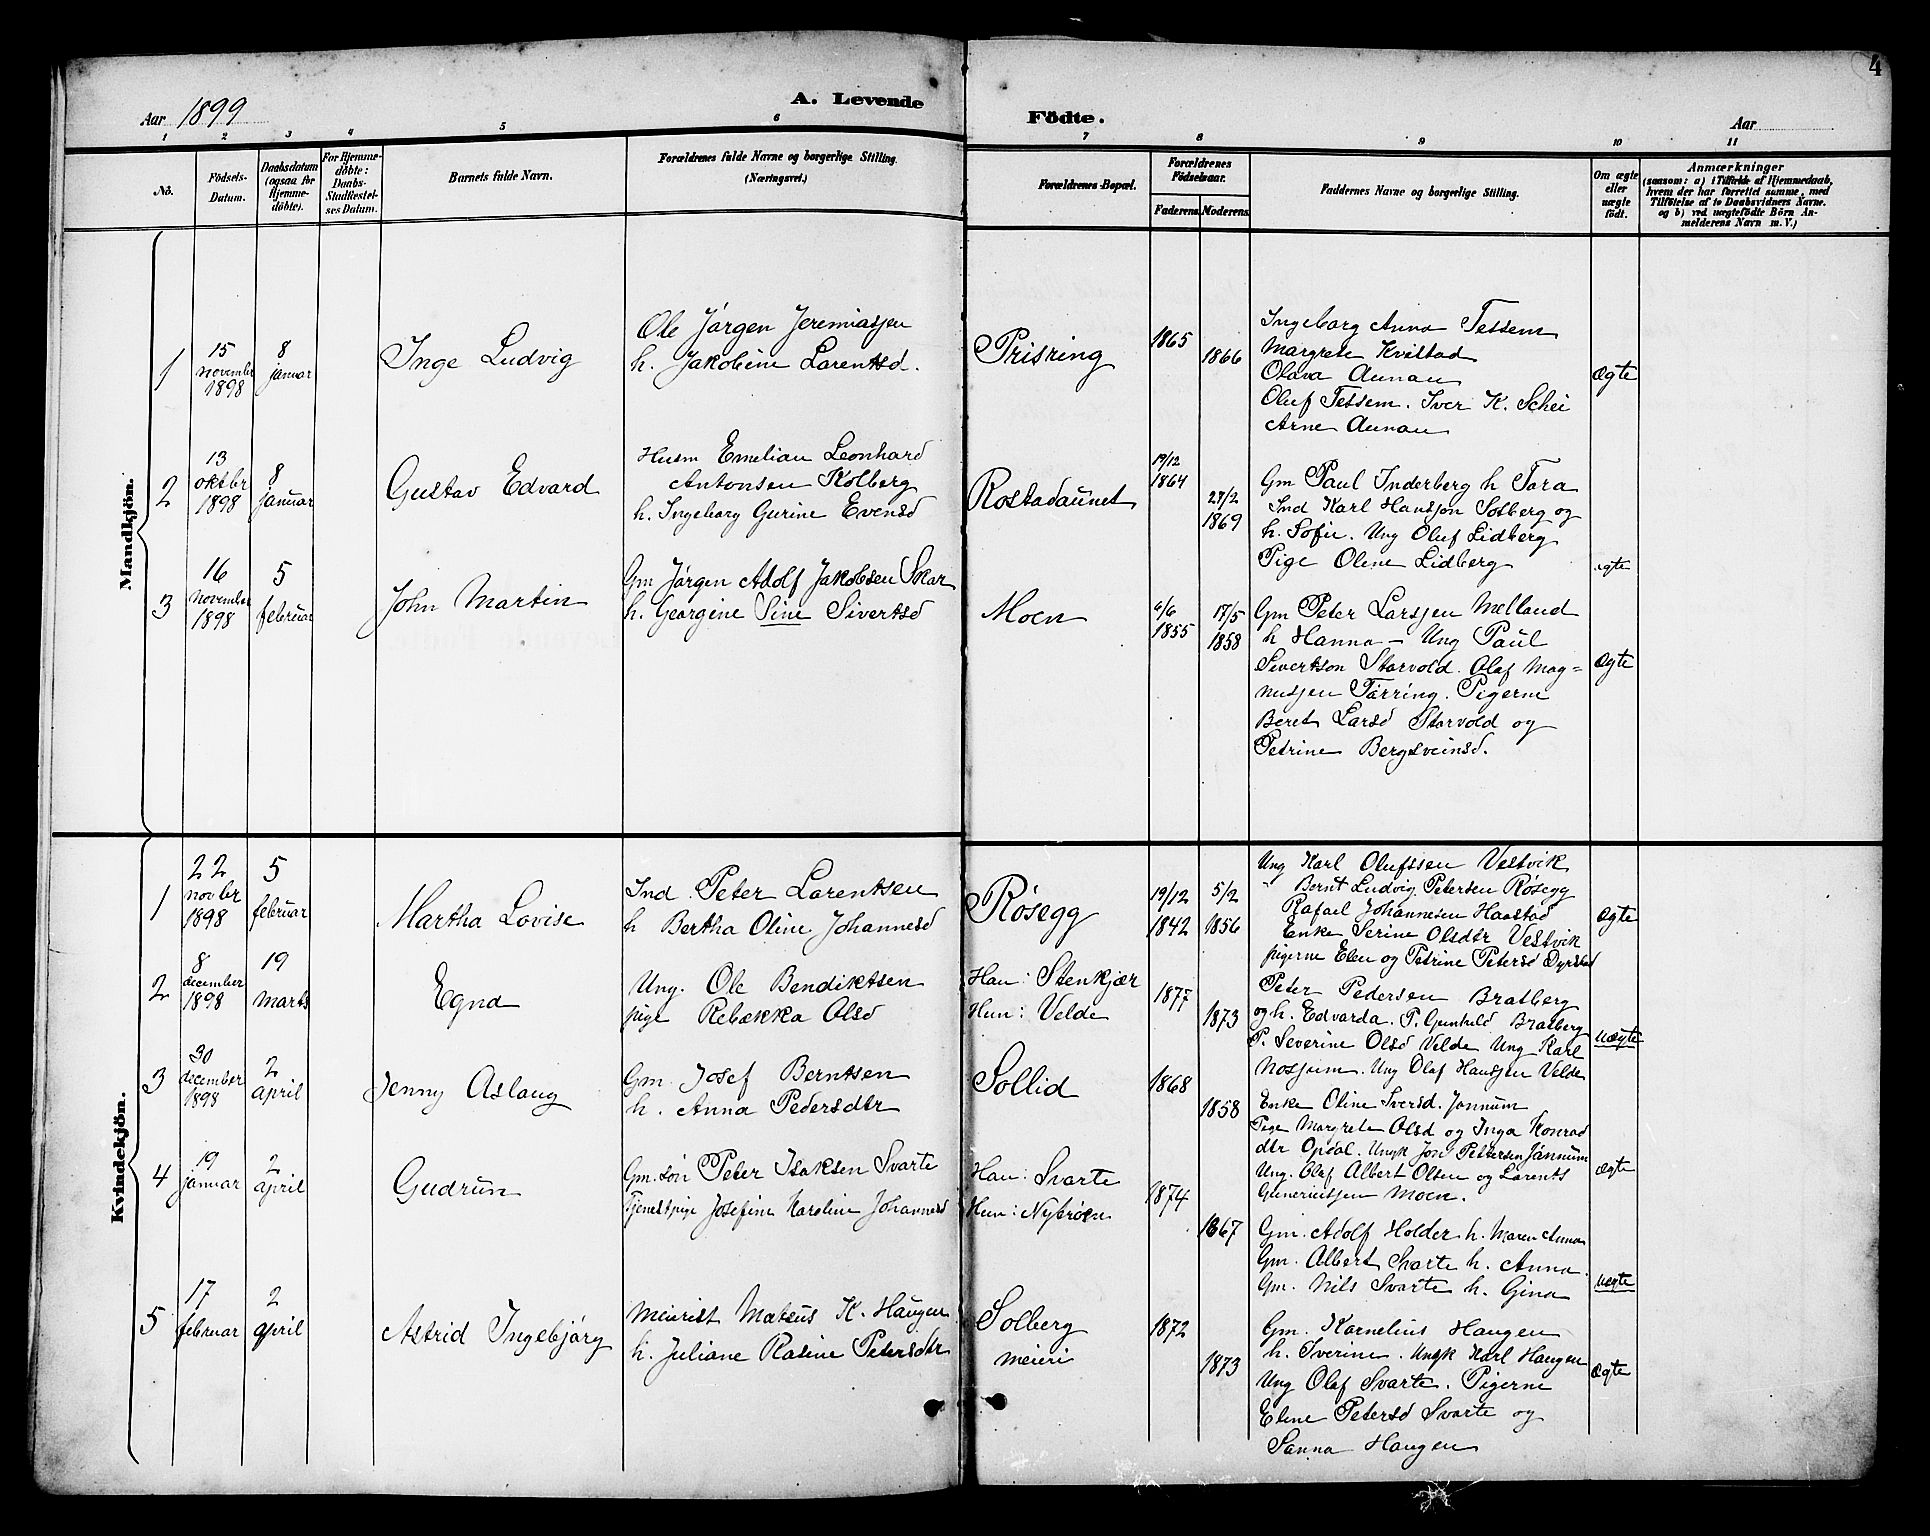 4
Aar 1899
A. Levende
Födte.
Aar
1 2 3 4 5 6 7 8 9 10 11
No.
Födsels-
Datum.
Daabsdatum
(ogsaa for
Hjemme-
döbte).
For Hjemme-
döbte:
Daabs-
Stadfestel-
ses Datum.
Barnets fulde Navn.
Forældrenes fulde Navne og borgerlige Stilling.
(Næringsvei.)
Forældrenes Bopæl.
Forældrenes
Födselsaar.
Faderens. Moderens.
Faddernes Navne og borgerlige Stilling.
Om ægte
eller
uægte
födt.
Anmærkninger
(saasom: a) i Tilfælde af Hjemmedaab,
hvem der har forrettet samme, med
Tilföielse af to Daabsvidners Navne.
og b) ved uægtefödte Börn An-
melderens Navn m. V.)
Mandkjön.
1
15
november
1898
8
januar
Inge Ludvig
Ole Jörgen Jeremiassen
h. Jakobine Larentsd.
Prisring
1865
1866
Ingeborg Anna Tessem
Margrete Kvistad
Olava Aunau
Oluf Tessem. Iver K. Schei
Arne Aunau
Ægte
2
13
oktbr
1898
8
januar
Gustav Edvard
Husm Emelian Leonhard
Antonsen Kolberg
h. Ingeborg Gurine Evensd
Rostadaunet
19/12
1864
27/2
1869
Gm Paul Inderberg h Tora
Ind Karl Hanssen Solberg og
h. Sofie. Ung Oluf Lidberg
Pige Oline Lidberg
ægte
3
16
november
1898
5
februar
John Martin
Gm Jörgen Adolf Jakobsen Skar
h. Georgine Sine Sivertsd
Moen
6/6
1855
17/5
1858
Gm Peter Larssen Melland
h Hanna - Ung Paul
Sivertson Storvold. Olaf Mag=
nussen Tørring. Pigerne
Beret Larsd Storvold og
Petrine Bergsveinsd.
Ægte
Kvindekjön.
1
22
novbr
1898
5
februar
Martha Lovise
Ind. Peter Larentsen
h Bertha Oline Johannesd
Røsegg
19/12
1842
5/2
1856
Ung Karl Olufssen Vestvik
" Bernt Ludvig Petersen Røsegg
Rafael Johannesen Haastad
Enke Serine Olsdtr Vestvik
pigerne Elen og Petrine Petersd Dyrstad
Ægte
2
8
december
1898
19
marts
Egna
Ung. Ole Bendiktsen
pige Rebækka Olsd
Han: Stenkjær
Hun: Velde
1877
1873
Peter Pedersen Bratberg
og h. Edvarda. P. Gunhild Bratberg
P. Severine Olsd Velde Ung Karl
Mosseim. Ung Olaf Hanssen Velde
uægte
3
30
december
1898
2
april
Jenny Aslaug
Gm. Josef Berntsen
h. Anna Pedersdtr
Sollid
1868
1858
Enke Oline Iversd. Jønnum
Pige Margrete Olsd og Inga Konrad
dtr Opdal. Ungk Jon Pettersen Jønnum
Ung. Olaf Albert Olsen og Lorents
Guneriussen Moen.
Ægte
4
19
januar
2
april
Gudrun
Gm. søn Peter Isaksen Svarte
Tjenestpige Josefine Karoline Johannesd
Han: Svarte
Hun: Nybrøen
1874
1867
Gm. Adolf Holder h. Maren Anna
Gm. Albert Svarte h. Anna
Gm. Nils Svarte h. Gina
uægte
5
17
februar
2
april
Astrid Ingebjørg
Meierist Mateus K. Haugen
h. Juliane Rasine Petersdtr
Solberg
meieri
1872
1873
Gm. Kornelius Haugen
h. Iverine. Ungk Karl Haugen
Ung Olaf Svarte. Pigerne
Eline Petersd Svarte og
Sanna Haugen
Ægte